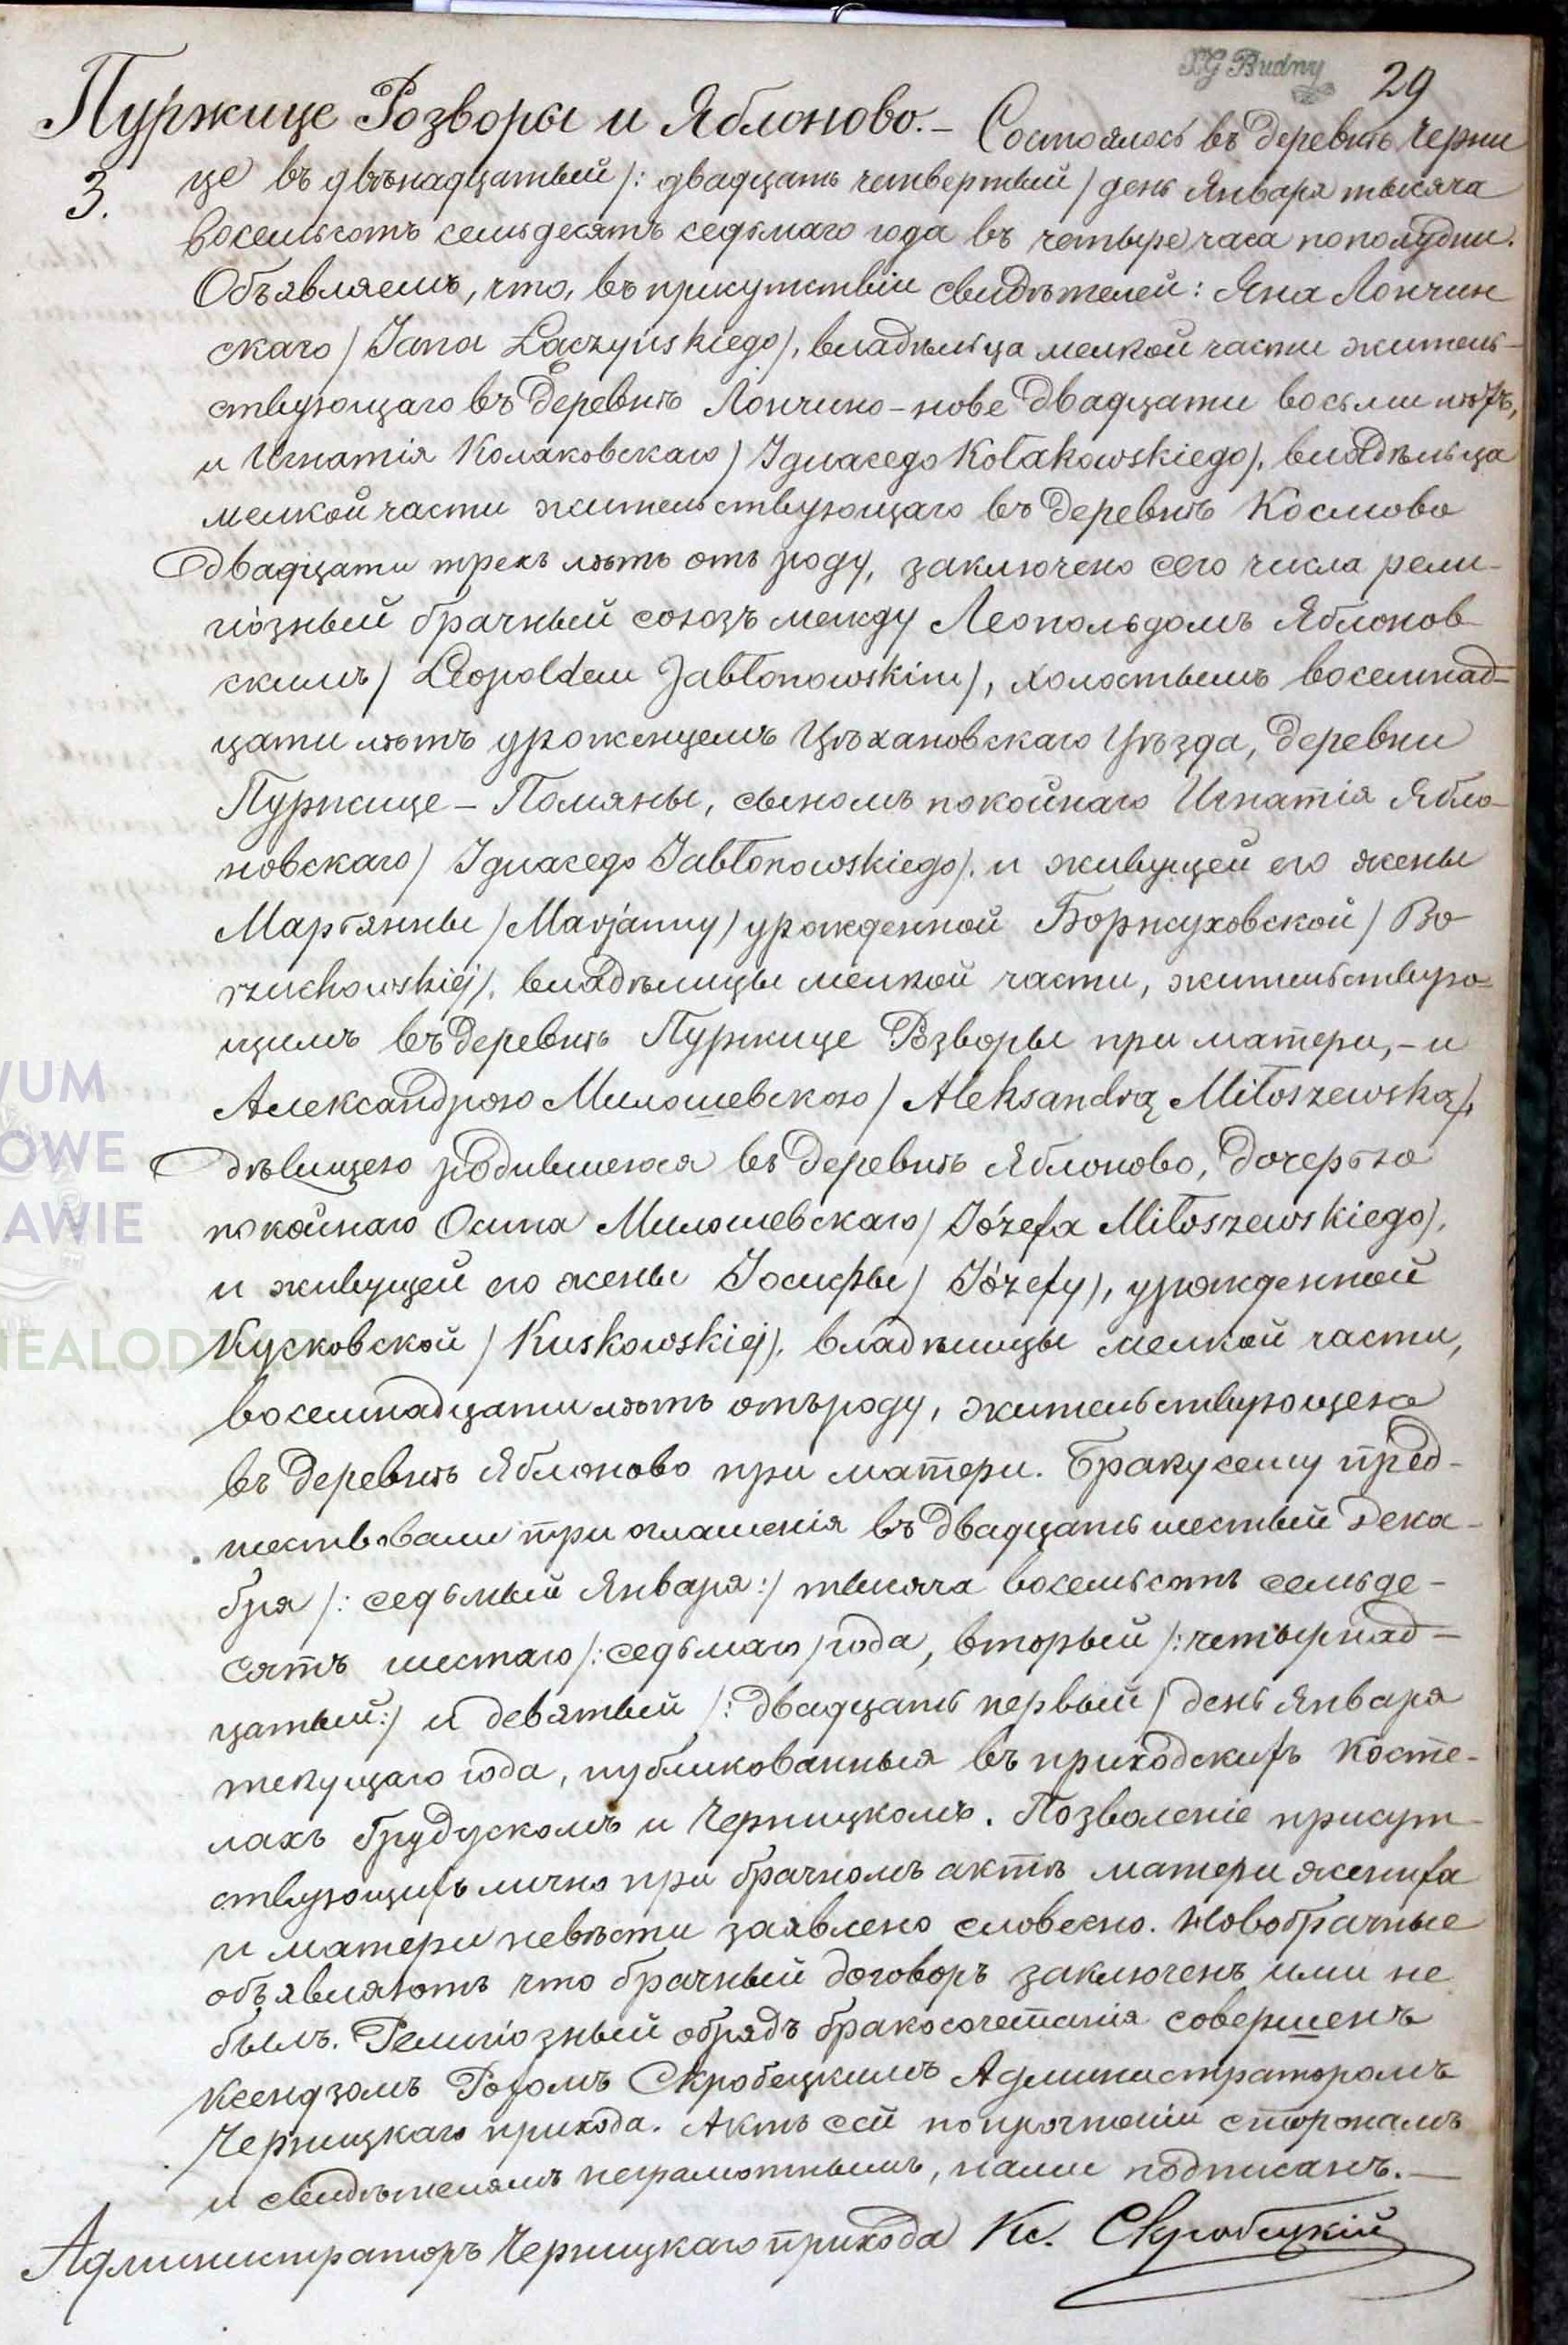 X G Budny 29
Пуржице Розворы и Яблоново.- Состоялось въ деревнѣ Черни
3. це въ двѣнадцатый /: двадцать четвертый / день Января тысяча
восемьсотъ семьдесятъ седьмаго года въ четыре часа пополудни.
Объявляемъ, что, въ присутствіи свидѣтелей: Яна Лончин
скаго / Jana Łączyńskiego/, владѣльца мелкой части житель-
ствующаго въ деревнѣ Лончино-нове двадцати восьми лѣтъ,
и Игнатія Колаковскаго / Ignacego Kołakowskiego/, владѣльца
мелкой части жительствующаго въ деревнѣ Космово
двадцати трехъ лѣтъ отъ роду, заключено сего числа рели-
гіозный брачный союзъ между Леопольдомъ Яблонов-
скимъ / Leopoldem Jabłonowskim/, холостымъ восемнад-
цати лѣтъ уроженцемъ Цѣхановскаго Уѣзда, деревни
Пуржице - Помяны, сыномъ покойнаго Игнатія Ябло-
новскаго / Ignacego Jabłonowskiego/. и живущей его жены
Марьянны / Marjanny / урожденной Боржуховской / Bo-
rzuchowskiej/, владѣлицы мелкой части, жительствую-
щимъ въ деревнѣ Пуржице Розворы при матери, - и
Александрою Милошевскою / Aleksandrą Miłoszewską/,
дѣвицею родившеюся въ деревнѣ Яблоново, дочерью
покойнаго Осипа Милошевскаго / Józefa Miłoszewskiego/,
и живущей его жены Іосифы / Józefy/, урожденной
Кусковской / Kuskowskiej/, владѣлицы мелкой части,
восемнадцати лѣтъ отъ роду, жительствующею
въ деревнѣ Яблоново при матери. Браку сему пред-
шествовали три оглашенія въ двадцать шестый Дека-
бря /: седьмый Января :/ тысяча восемьсотъ семьде-
сятъ шестаго /: седьмаго / года, вторый /: четырнад-
цатый :/ и девятый /: двадцать первый / день Января
текущаго года, публикованныя въ приходскихъ косте-
лахъ Грудускомъ и Черницкомъ. Позволеніе присут-
ствующихъ лично при брачномъ актѣ матери жениха
и матери невѣсти заявлено словесно. Новобрачные
объявляютъ что брачный договоръ заключенъ ими не
былъ. Религіозный обрядъ бракосочетанія совершенъ
Ксендзомъ Рохомъ Скробецкимъ Администраторомъ
Черницкаго прихода. Актъ сей по прочтеніи сторонамъ
и свидѣтелямъ неграмотнымъ, нами подписанъ.-
Администраторъ Черницкаго прихода Кс. Скробецкій